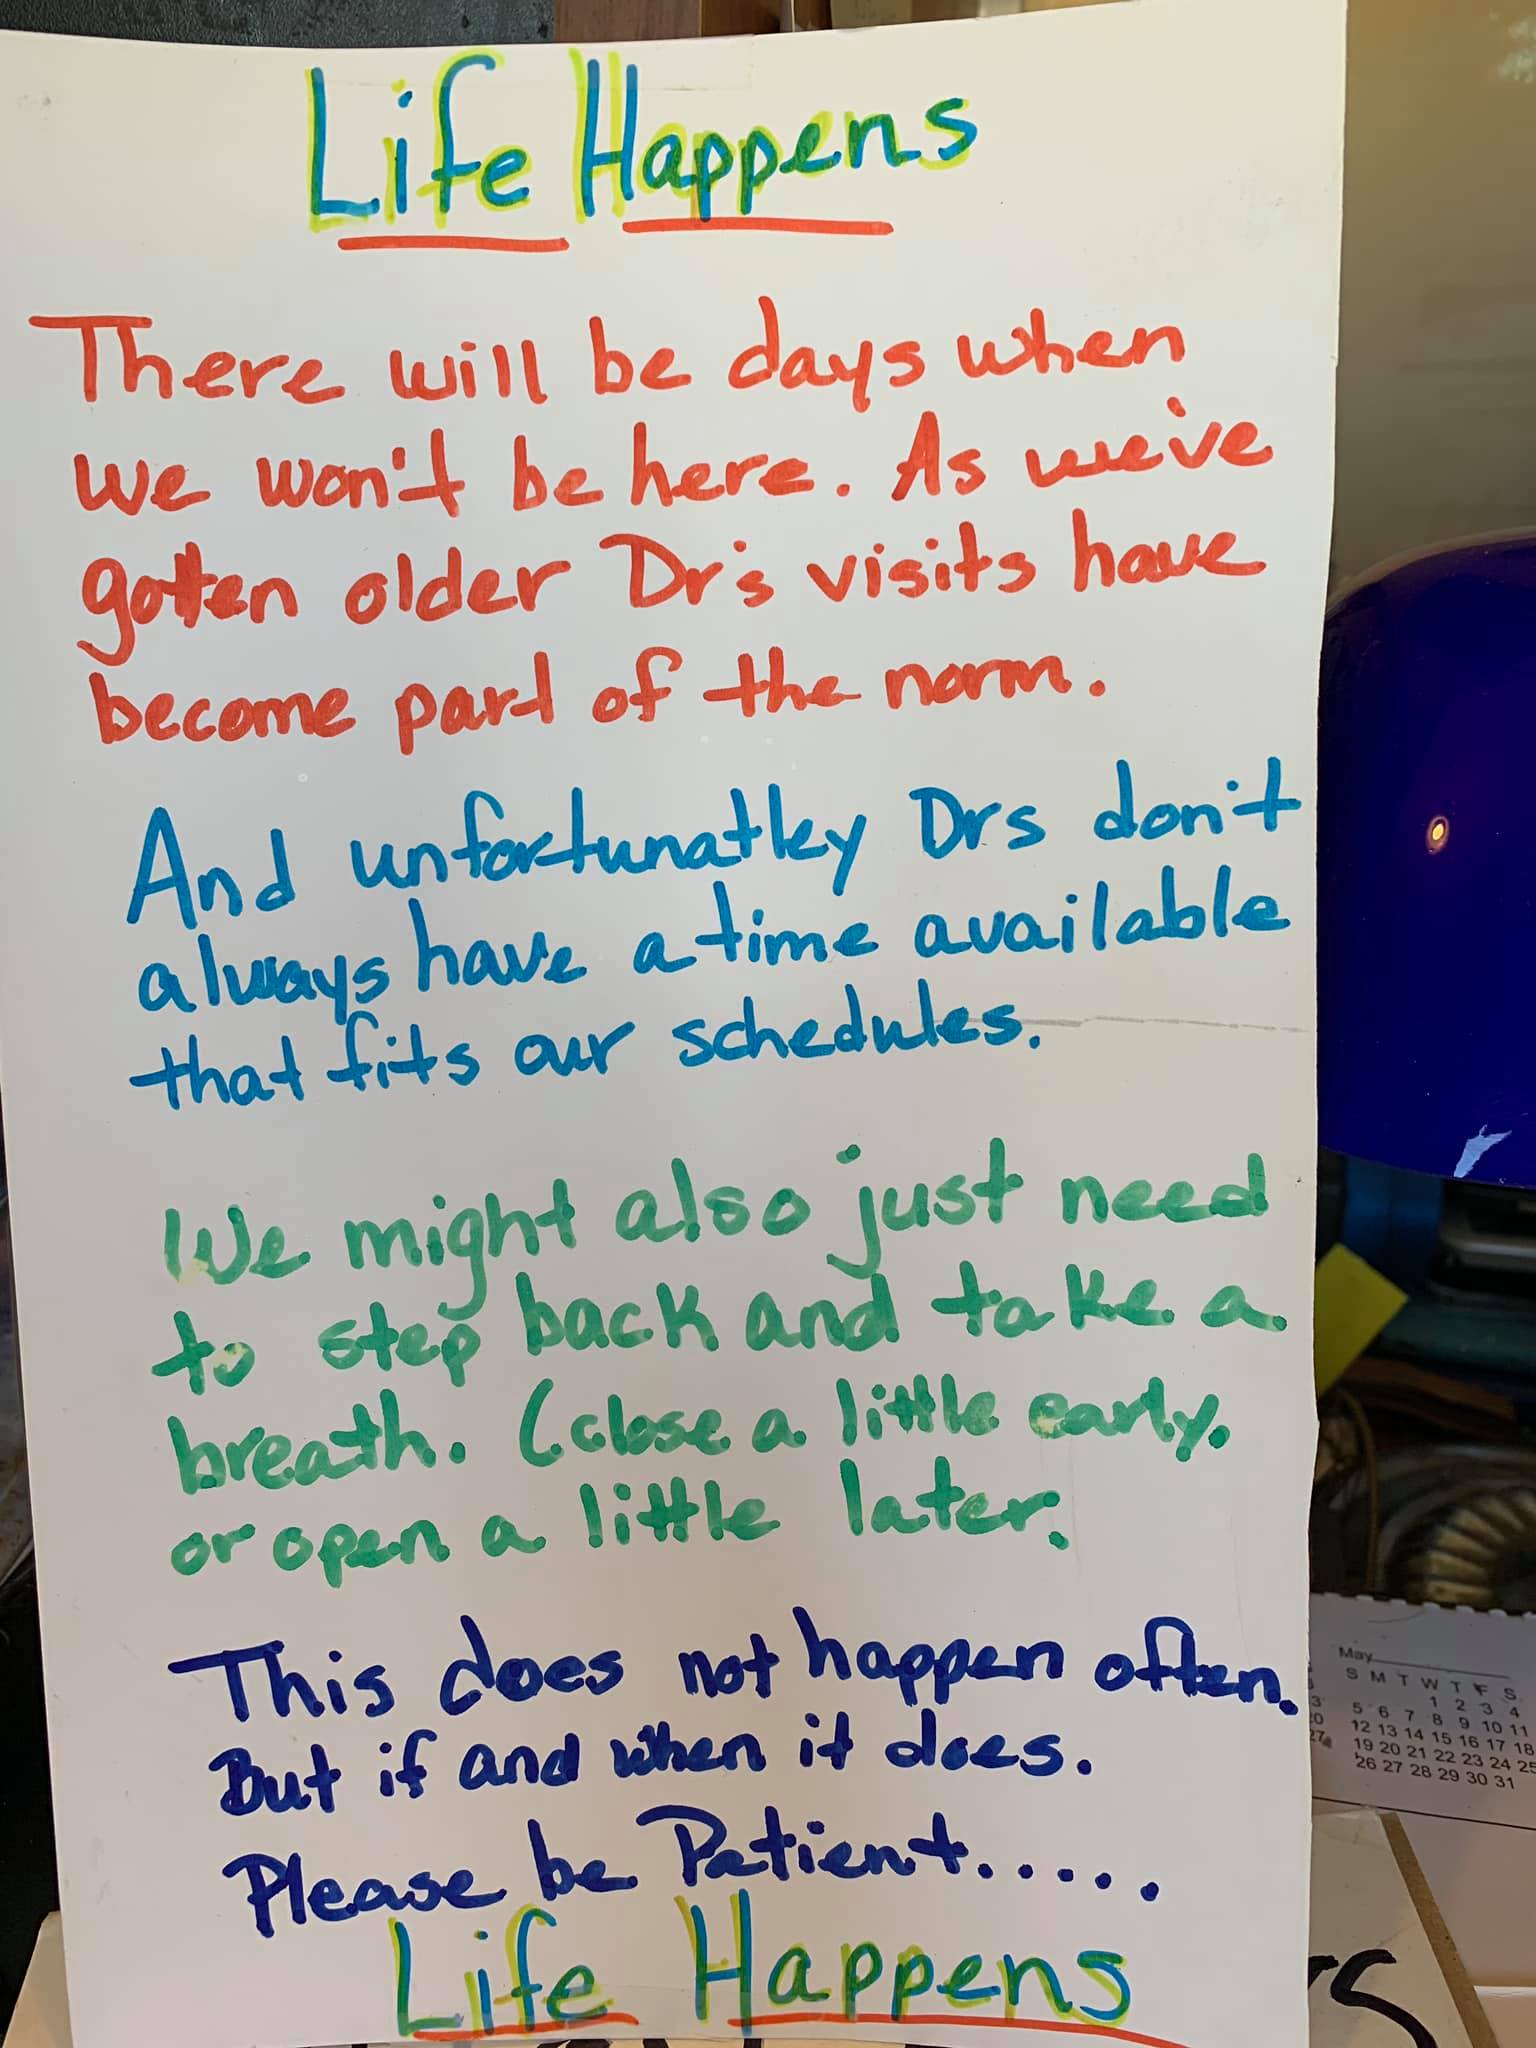 Life Happens
There will be days when
we won't be here. As we've
gotten older Dr's visits have
become part of the norm.
And unfortunatley Drs don't
always have a time available
that fits our schedules.
We might also just need
to step back and take a
breath. (close a little early.
or open a little later.
This does not happen often.
But if and when it does.
Please be Patient.....
Life Happens
May
S M T W T F S
1 2 3 4
5 6 7 8 9 10 11
12 13 14 15 16 17 18
19 20 21 22 23 24 25
26 27 28 29 30 31
3
20
27